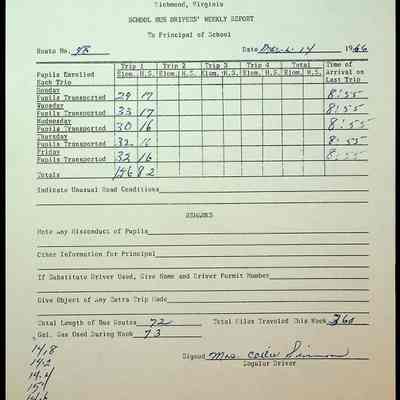 Richmond, Virginia
SCHOOL BUS DRIVERS' WEEKLY REPORT
To Principal of School
Route No. Date 14 1966
Trip 1 Trip 2 Trip 3 Trip 4 Total Time of
Pupils Enrolled Elem. H.S. Elem. H.S. Elem. H.S. Elem. H.S. Elem. H.S. Arrival on
Each Trip Last Trip
Monday
Pupils Transported 29 17 8:55
Tuesday
Pupils Transported 33 17 8:55
Wednesday
Pupils Transported 30 16 8:55
Thursday
Pupils Transported 32 16 8:55
Friday
Pupils Transported 32 16 8:55
Totals 156 82
Indicate Unusual Road Conditions
REMARKS
Note Any Misconduct of Pupils
Other Information for Principal
If Substitute Driver Used, Give Name and Driver Permit Number
Give Object of Any Extra Trip Made
Total Length of Bus Routes 72 Total Miles Traveled This Week 360
Gal. Gas Used During Week 73
Signed Mrs.
Regular Driver
14.8
14.2
14.4